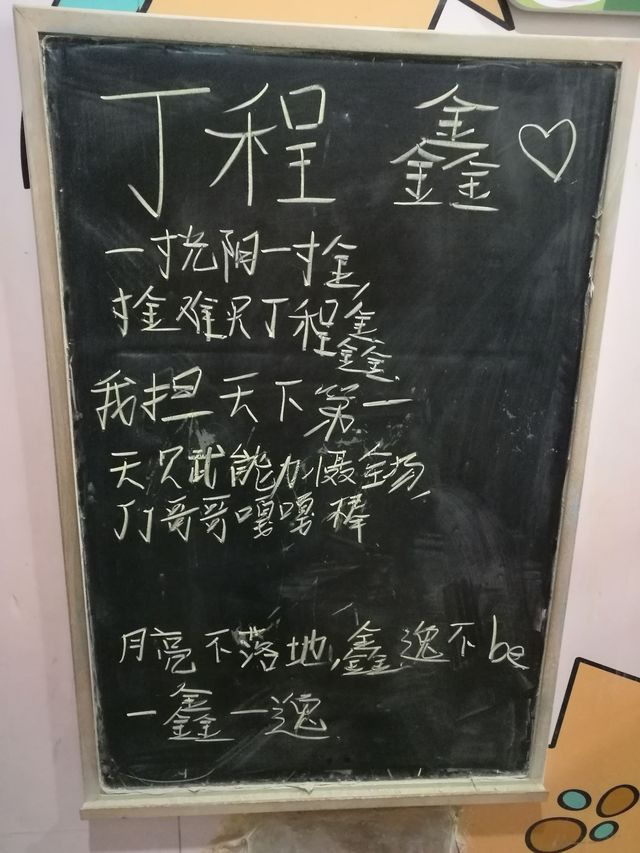 丁程鑫♡
一寸光阳一寸金,
寸金难买丁程鑫.
我担天下第一
天赋能力慑全场,
丁丁哥哥嘎嘎棒
月亮不落地,鑫逸不be
一鑫一逸.